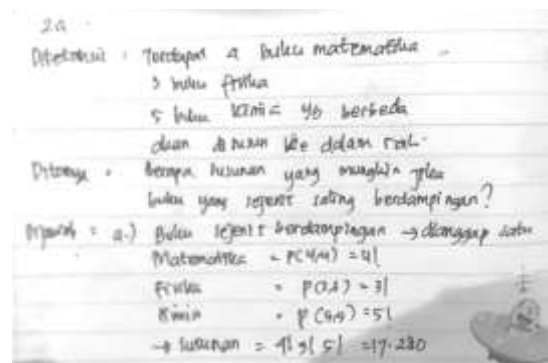 2a.
Diketahui : Terdapat 4 buku matematika
3 buku fisika
5 buku kimia yg berbeda
akan disusun ke dalam rak.
Ditanya : Berapa susunan yang mungkin jika
buku yang sejenis saling berdampingan?
Dijawab = a.) Buku sejenis berdampingan → dianggap satu
Matematika = P(4,4) = 4!
Fisika = P(3,3) = 3!
Kimia = P(5,5) = 5!
→ susunan = 4! 3! 5! = 17.280